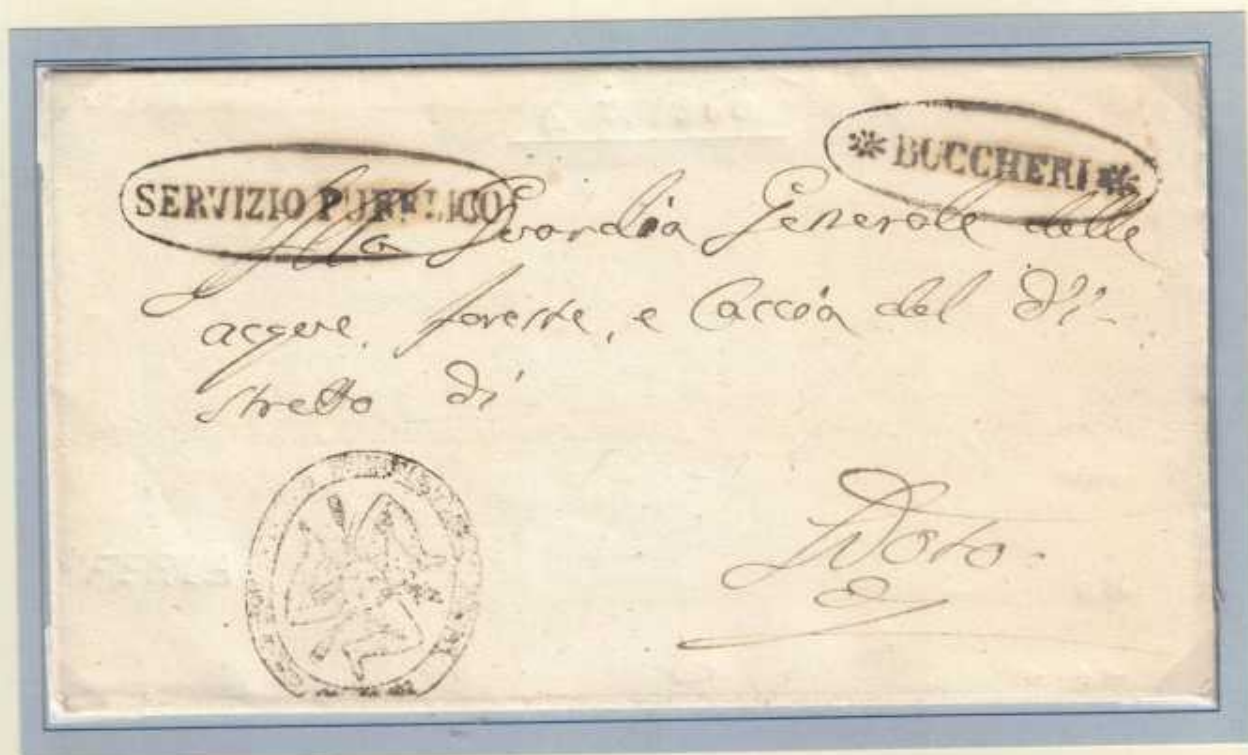 SERVIZIO PUBBLICO
* BUCCHERI *
Alla Guardia Generale delle
acque, foreste, e Caccia del Di-
stretto di
Noto.